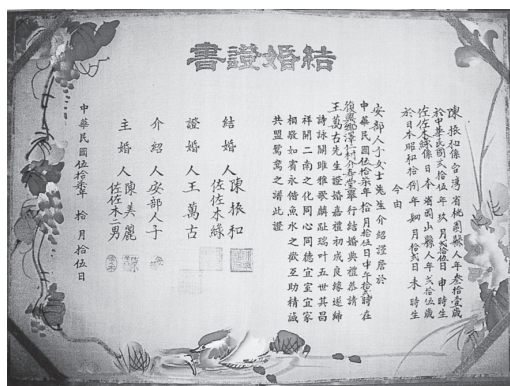 結婚證書
陳振和係台灣省桃園縣人年叁拾壹歲
於中華民國貳拾伍年玖月貳拾伍日申時生
佐佐木綠係日本省岡山縣人年貳拾伍歲
於日本昭和拾捌年捌月拾貳日未時生
今由
安部人子女士先生介紹謹居於
中華民國伍拾年拾月拾伍日中午拾時在
復興鄉澤仁村介壽堂舉行結婚典禮恭請
王萬古先生證婚嘉禮初成良緣遂締
詩詠關雎雅歌麟趾瑞叶五世其昌
祥開二南之化同心同德宜室宜家
相敬如賓永偕魚水之歡互助精誠
共盟鴛鴦之譜此證
結婚人 陳振和
佐佐木綠
證婚人 王萬古
介紹人 安部人子
主婚人 陳美麗
佐佐木二男
中華民國伍拾年拾月拾伍日